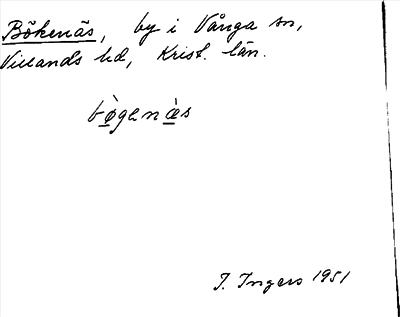 Bökenäs, by i Vånga sn,
Villands hd, Krist. län.
bø̀genæ̀s
I. Ingers 1951